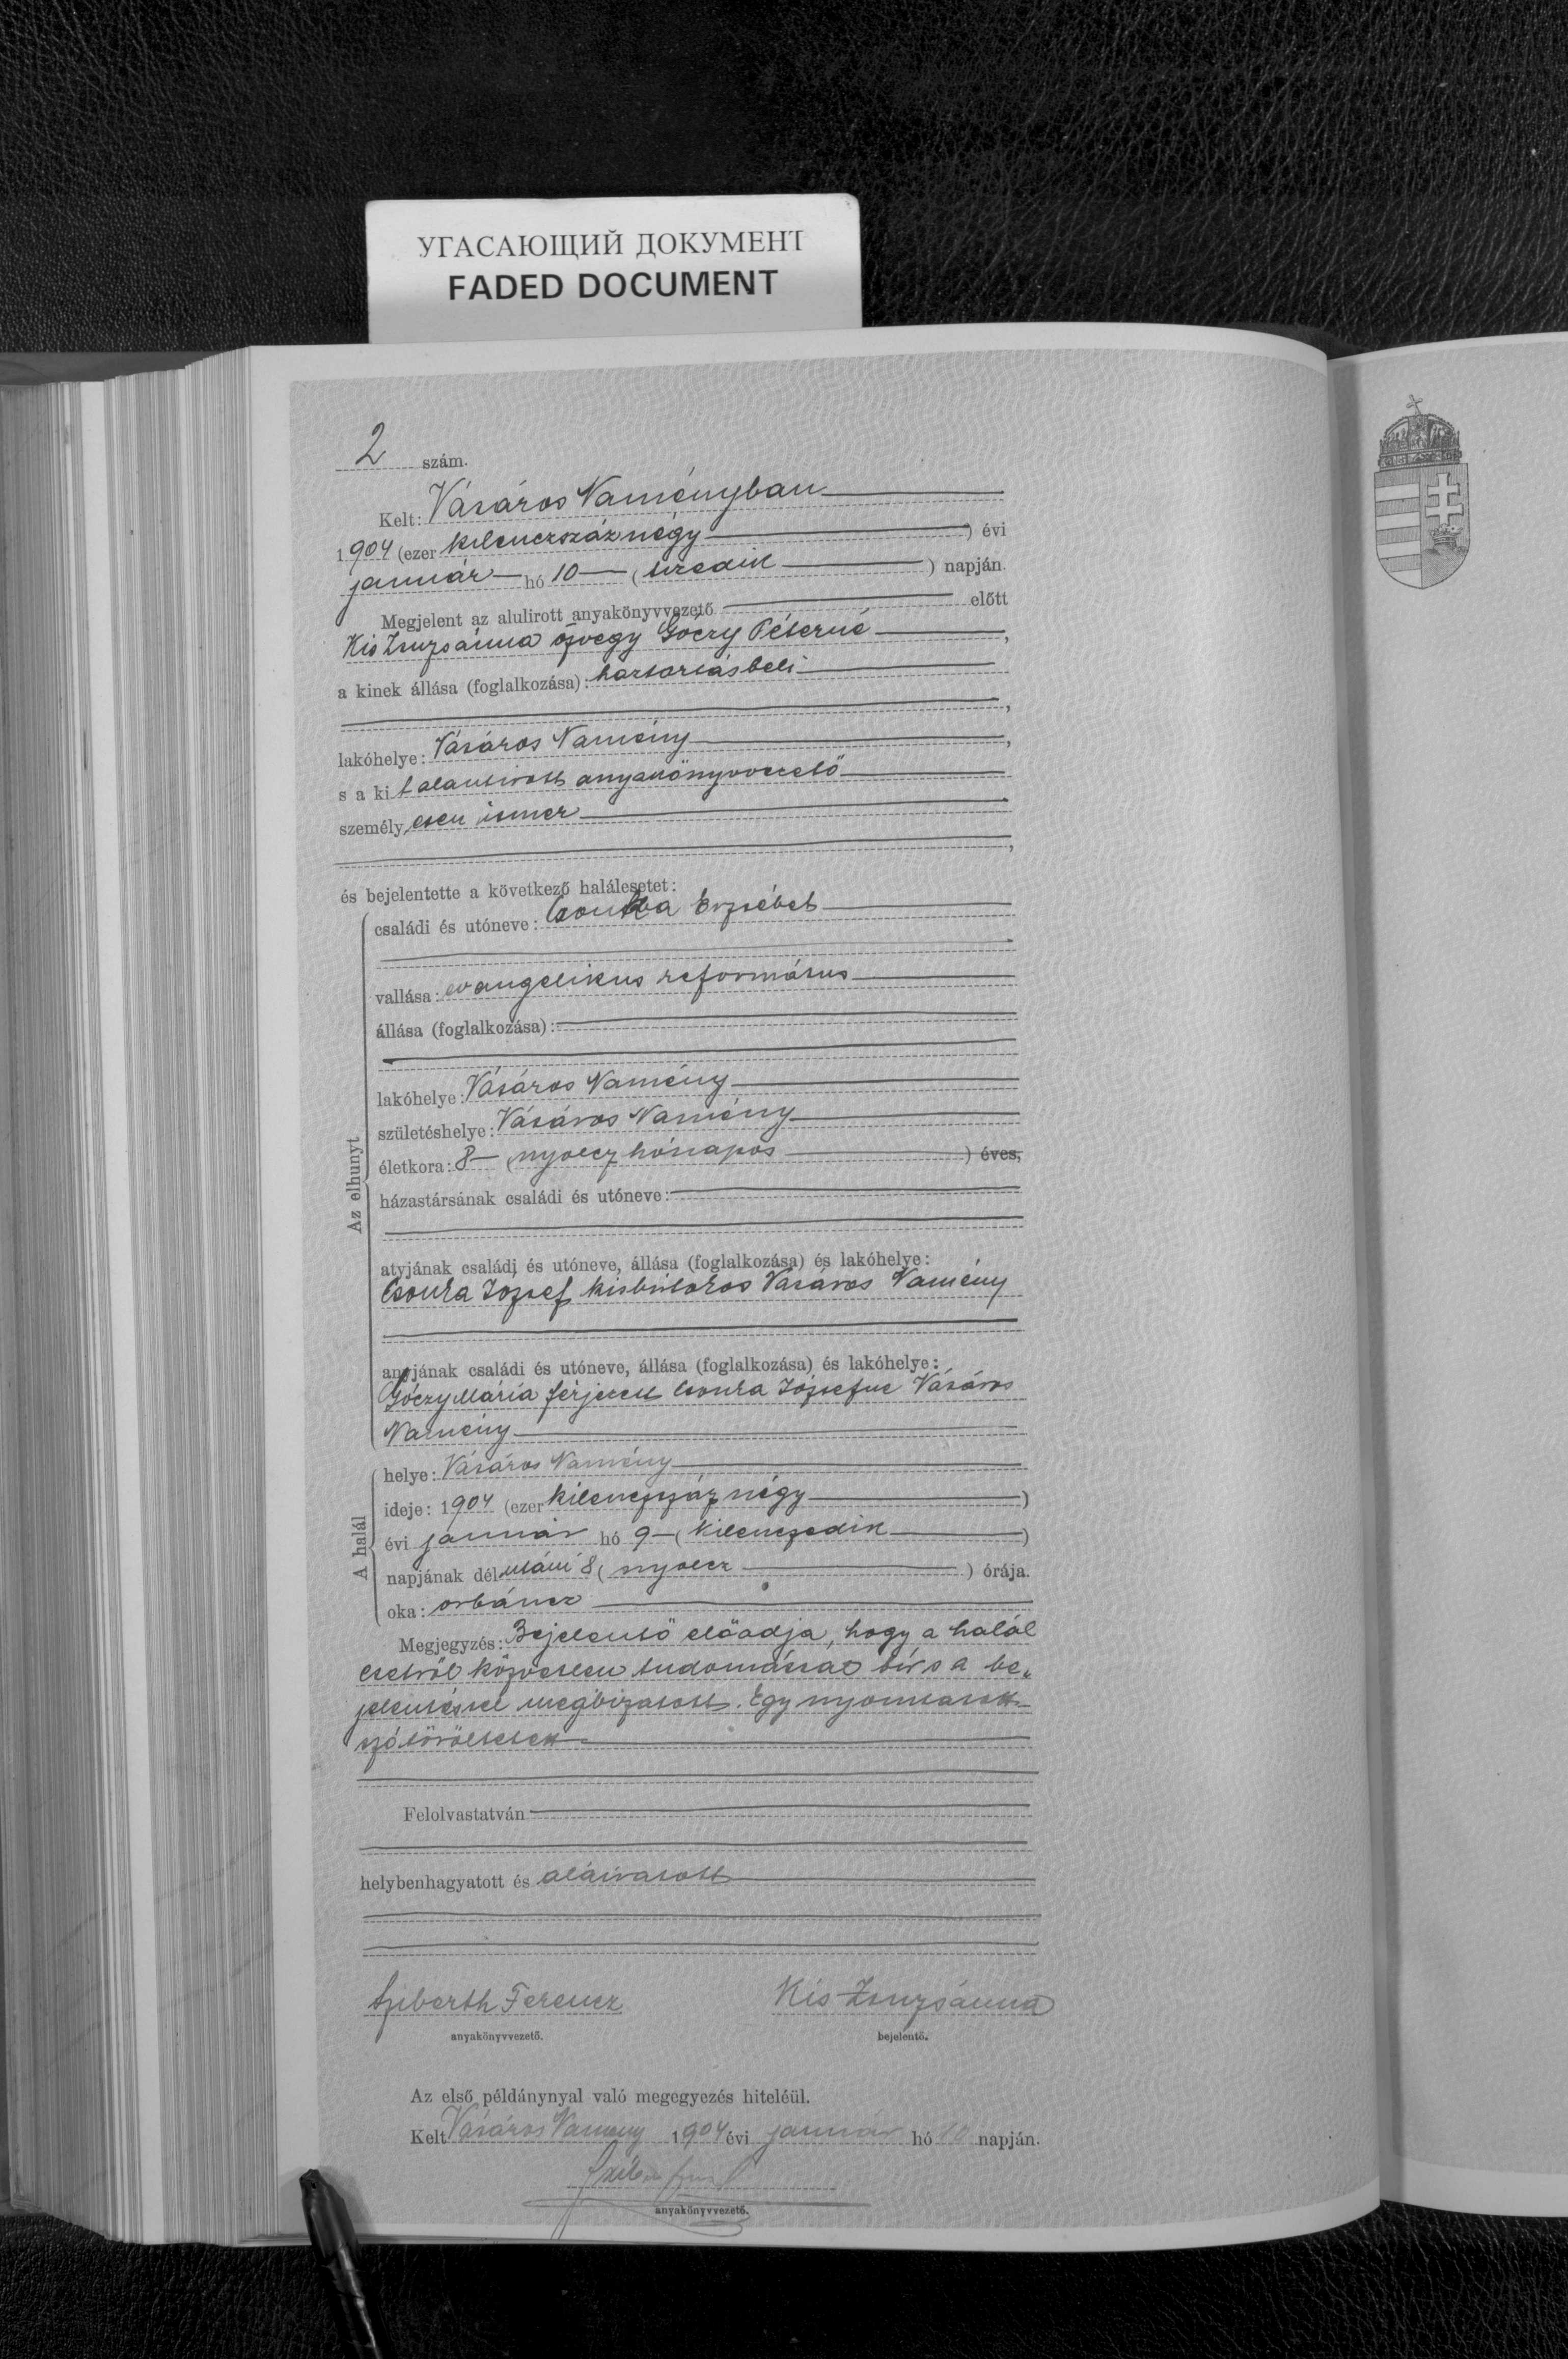 УГАСАЮЩИЙ ДОКУМЕНТ
FADED DOCUMENT
2 szám.
Kelt: Vásáros Naményban
1904 (ezer kilenczszáznégy) évi
január hó 10 (tizedik) napján.
Megjelent az alulirott anyakönyvvezető előtt
Kis Zsuzsánna özvegy Góczy Péterné,
a kinek állása (foglalkozása):
lakóhelye: Vásáros Namény,
s a kit alantirott anyakönyvvezető
személyesen ismer,
és bejelentette a következő halálesetet:
Az elhunyt
családi és utóneve: Csonka Erzsébet
vallása: evangelikus református
állása (foglalkozása):
lakóhelye: Vásáros Namény
születéshelye: Vásáros Namény
életkora: 8 (nyolcz hónapos) éves,
házastársának családi és utóneve:
atyjának családi és utóneve, állása (foglalkozása) és lakóhelye:
Csonka József kisbirtokos Vásáros Namény
anyjának családi és utóneve, állása (foglalkozása) és lakóhelye:
Góczy Mária férjezett Csonka Józsefné Vásáros
Namény
A halál
helye: Vásáros Namény
ideje: 1904 (ezer kilenczszáz négy)
évi január hó 9 (kilenczedik)
napjának délutáni 8 (nyolcz) órája.
oka: orbáncz
Megjegyzés: Bejelentő előadja, hogy a halál
esetről közvetlen tudomással bír s a be„
jelentéssel megbizatott. Egy nyomtatott
szó töröltetett
Felolvastatván
helybenhagyatott és aláiratott
Sziberth Ferencz Kis Zsuzsánna
anyakönyvvezető. bejelentő.
Az első példánynyal való megegyezés hiteléül.
Kelt Vásáros Namény 1904 évi január hó 10 napján.
anyakönyvvezető.